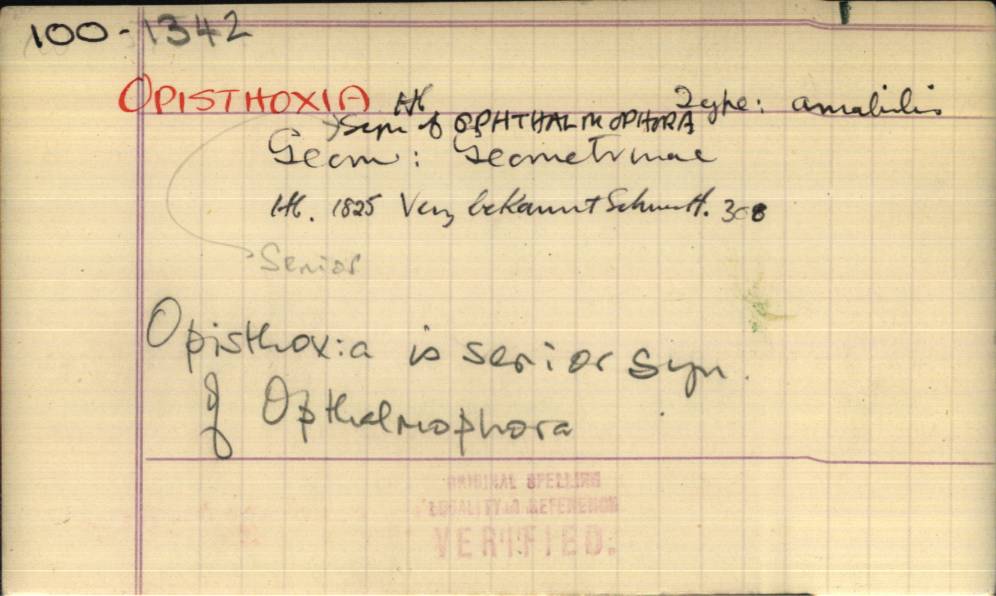 100-1342
OPISTHOXIA Hb Type: amabilis
Syn of OPHTHALMOPHORA
Geom: Geometrinae
Hb. 1825 Verz bekannt Schmett. 308
Senior
Opisthoxia is senior syn.
of Opthalmophora
ORIGINAL SPELLING
VERIFIED.